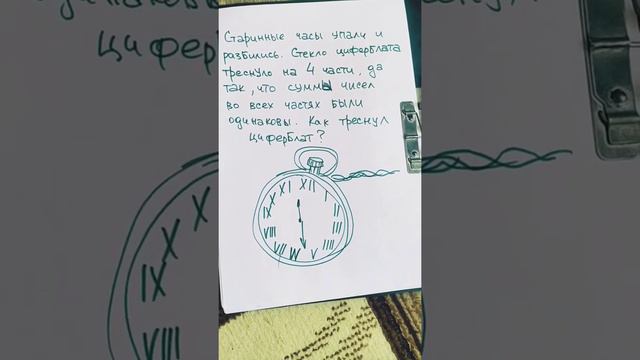 Старинные часы упали и
разбились. Стекло циферблата
треснуло на 4 части, да
так, что суммы чисел
во всех частях были
одинаковы. Как треснул
циферблат?
XI XII I
X II
IX III
VIII IIII
VII VI V